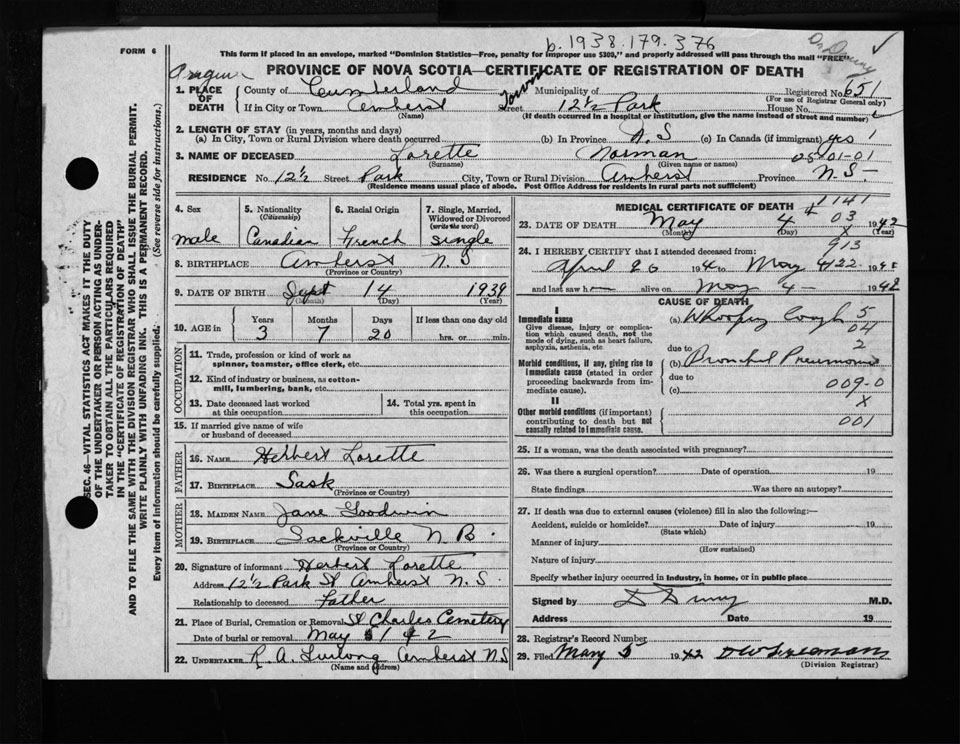 b. 1938. 179. 376
FORM 6
This form if placed in an envelope, marked "Dominion Statistics—Free, penalty for improper use $300," and properly addressed will pass through the mail "FREE"
PROVINCE OF NOVA SCOTIA—CERTIFICATE OF REGISTRATION OF DEATH
1. PLACE OF DEATH
County of Cumberland Municipality of Registered No. 651
(For use of Registrar General only)
If in City or Town Amherst Town Street 12½ Park House No.
(Name) (If death occurred in a hospital or institution, give the name instead of street and number)
2. LENGTH OF STAY (in years, months and days)
(a) In City, Town or Rural Division where death occurred (b) In Province N.S (c) In Canada (if immigrant) yes 1
3. NAME OF DECEASED Lorette Norman 05-01-01
(Surname) (Given name or names)
RESIDENCE No. 12½ Street Park City, Town or Rural Division Amherst Province N.S.
(Residence means usual place of abode. Post Office Address for residents in rural parts not sufficient)
4. Sex male
5. Nationality (Citizenship) Canadian
6. Racial Origin French
7. Single, Married, Widowed or Divorced (write the word) single
8. BIRTHPLACE Amherst N.S
(Province or Country)
9. DATE OF BIRTH Sept 14 1938
(Month) (Day) (Year)
10. AGE in Years 3 Months 7 Days 20 If less than one day old hrs. or min.
OCCUPATION
11. Trade, profession or kind of work as spinner, teamster, office clerk, etc.
12. Kind of industry or business, as cotton-mill, lumbering, bank, etc.
13. Date deceased last worked at this occupation
14. Total yrs. spent in this occupation
15. If married give name of wife or husband of deceased
FATHER
16. NAME Herbert Lorette
17. BIRTHPLACE Sask
(Province or Country)
MOTHER
18. MAIDEN NAME Jane Goodwin
19. BIRTHPLACE Sackville N B.
(Province or Country)
20. Signature of informant Herbert Lorette
Address 12½ Park St Amherst N.S.
Relationship to deceased Father
21. Place of Burial, Cremation or Removal St Charles Cemetery
Date of burial or removal May 5/42
22. UNDERTAKER R. A. Furlong Amherst N.S
(Name and address)
MEDICAL CERTIFICATE OF DEATH 1141
23. DATE OF DEATH May 4 03 1942
(Month) (Day) X (Year)
913
24. I HEREBY CERTIFY that I attended deceased from:
April 26 194 to May 4 22 1942
and last saw h alive on May 4 - 1942
CAUSE OF DEATH
I
Immediate cause
Give disease, injury or complication which caused death, not the mode of dying, such as heart failure, asphyxia, asthenia, etc
(a) Whooping Cough 5
04
due to 2
Morbid conditions, if any, giving rise to immediate cause (stated in order proceeding backwards from immediate cause).
(b) Bronchial Pneumonia
due to 009-0
(c) X
II
Other morbid conditions (if important) contributing to death but not causally related to immediate cause.
001
25. If a woman, was the death associated with pregnancy?
26. Was there a surgical operation? Date of operation 19
State findings Was there an autopsy?
27. If death was due to external causes (violence) fill in also the following:—
Accident, suicide or homicide? Date of injury 19
(State which)
Manner of injury
(How sustained)
Nature of injury
Specify whether injury occurred in industry, in home, or in public place
Signed by M.D.
Address Date 19
28. Registrar's Record Number
29. Filed May 5 1942
(Division Registrar)
SEC. 46—VITAL STATISTICS ACT MAKES IT THE DUTY
OF THE UNDERTAKER OR PERSON ACTING AS UNDER-
TAKER TO OBTAIN ALL THE PARTICULARS REQUIRED
IN THE "CERTIFICATE OF REGISTRATION OF DEATH"
AND TO FILE THE SAME WITH THE DIVISION REGISTRAR WHO SHALL ISSUE THE BURIAL PERMIT.
WRITE PLAINLY WITH UNFADING INK. THIS IS A PERMANENT RECORD.
Every item of information should be carefully supplied. (See reverse side for instructions.)